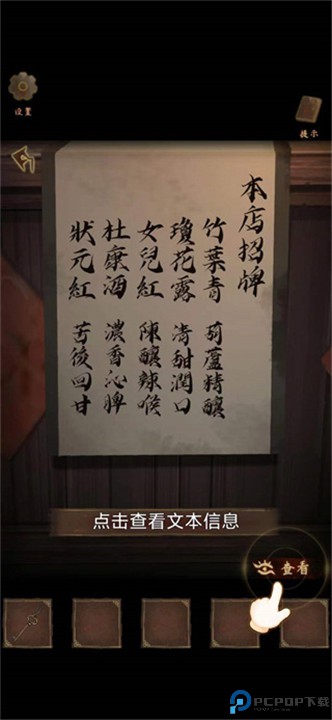 设置
提示
本店招牌
竹葉青 葫蘆精釀
瓊花露 清甜潤口
女兒紅 陳釀辣喉
杜康酒 濃香沁脾
狀元紅 苦後回甘
点击查看文本信息
查看
PCPOP下载